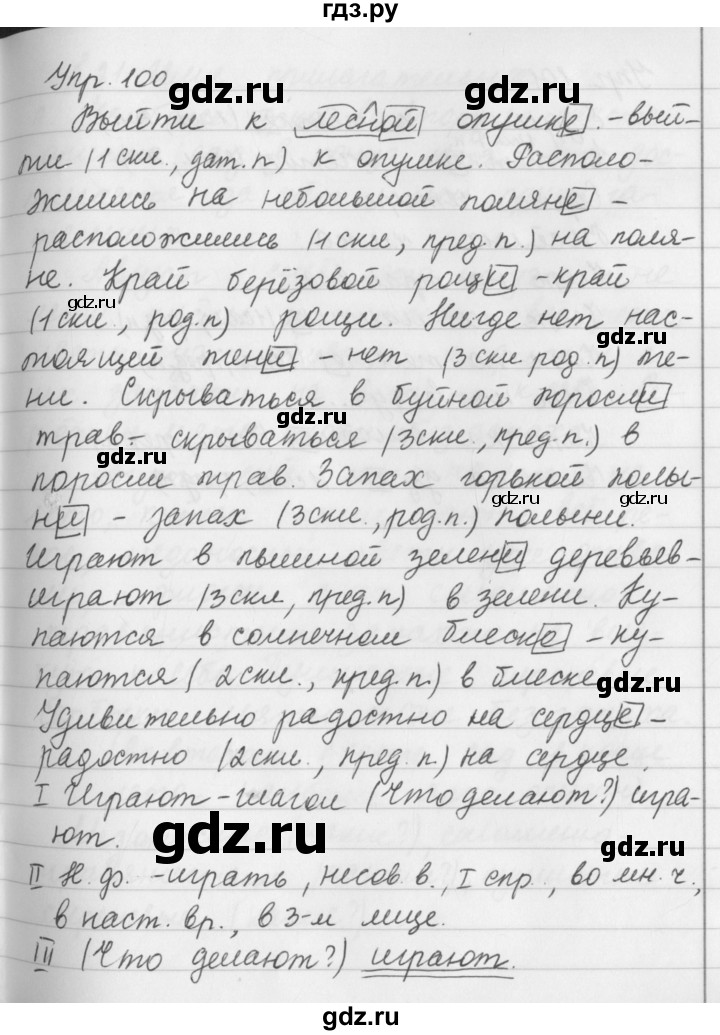 гдз.ру
Упр. 100
gdz.ru
Выйти к лесной опушке. - вый-
gdz.ru
ти (1 скл., дат. п.) к опушке. Располо-
жились на небольшой поляне -
gdz.ru
расположились (1 скл., пред. п.) на поля-
не. Край берёзовой рощи - край
gdz.ru
(1 скл., род. п) рощи. Нигде нет нас-
gdz.ru
тоящей тени - нет (3 скл род. п) те-
ни. Скрываться в буйной поросли
gdz.ru
трав - скрываться (3 скл., пред. п.) в
gdz.ru
поросли трав. Запах горькой полы-
gdz.ru
gdz.ru
ни - запах (3 скл., род. п.) полыни.
Играют в пышной зелени деревьев -
gdz.ru
играют (3 скл, пред. п) в зелени. Ку-
паются в солнечном блеске - ку-
паются (2 скл., пред. п.) в блеске
gdz.ru
Удивительно радостно на сердце -
gdz.ru
радостно (2 скл., пред. п) на сердце.
I Играют - глагол (Что делают?) игра-
ют.
gdz.ru
gdz.ru
II Н. ф. - играть, несов. в., I спр., во мн. ч.,
в наст. вр., в 3-м лице.
III (Что делают?) играют.
gdz.ru